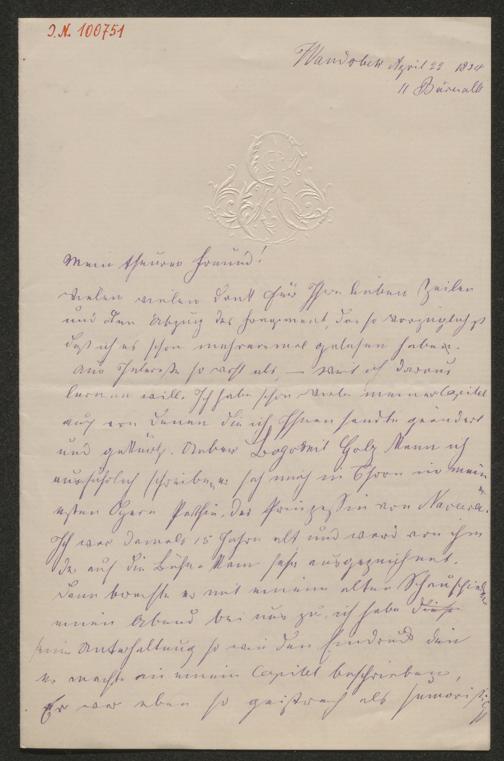 I.N. 100751
Wandsbek April 22 1894
11 Bärenallee
Mein theurer Freund!
vielen vielen Dank für Ihre lieben Zeilen
und den Abzug des Fragment, das so vorzüglich ist
daß ich es schon mehreremal gelesen habe.
Aus Interesse so wohl als, — weil ich daraus
lernen will. Ich habe schon viele meiner Capitel
auch von denen die ich Ihnen sandte geändert
und gekürzt. Ueber Bogumil Golz kann ich
ausführlich schreiben, er sah mich in Thorn in meiner
ersten Oper, des Prinzessin von Navarra.
Ich war damals 15 Jahre alt und ward von ihm
der auf die Bühne kam sehr ausgezeichnet.
Dann brachte er mit einem alten Schauspieler
einen Abend bei uns zu, ich habe diese
seine Unterhaltung so wie den Eindruck den
er machte in einem Capitel beschrieben,
Er war eben so geistreich als humoristisch